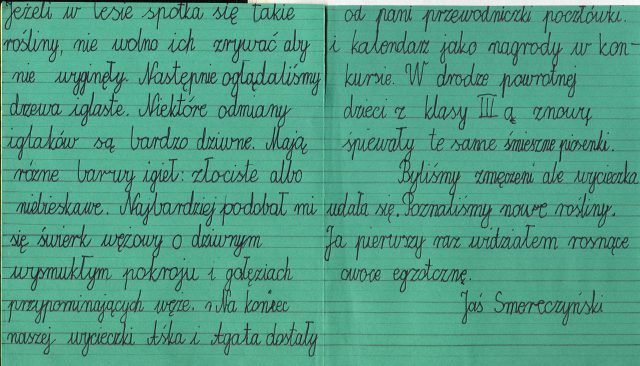 jeżeli w lesie spotka się takie
rośliny, nie wolno ich zrywać aby
nie wyginęły. Następnie oglądaliśmy
drzewa iglaste. Niektóre odmiany
iglaków są bardzo dziwne. Mają
różne barwy igieł: złociste albo
niebieskawe. Najbardziej podobał mi
się świerk wężowy o dziwnym
wysmukłym pokroju i gałęziach
przypominających węże. Na koniec
naszej wycieczki Aśka i Agata dostały
od pani przewodniczki pocztówki
i kalendarz jako nagrody w kon-
kursie. W drodze powrotnej
dzieci z klasy III a znowu
śpiewały te same śmieszne piosenki.
Byliśmy zmęczeni ale wycieczka
udała się. Poznaliśmy nowe rośliny.
Ja pierwszy raz widziałem rosnące
owoce egzotczne.
Jaś Smoreczyński